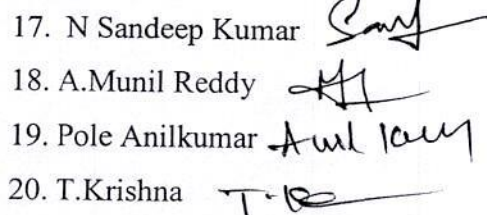 17. N Sandeep Kumar
18. A.Munil Reddy
19. Pole Anilkumar
20. T.Krishna